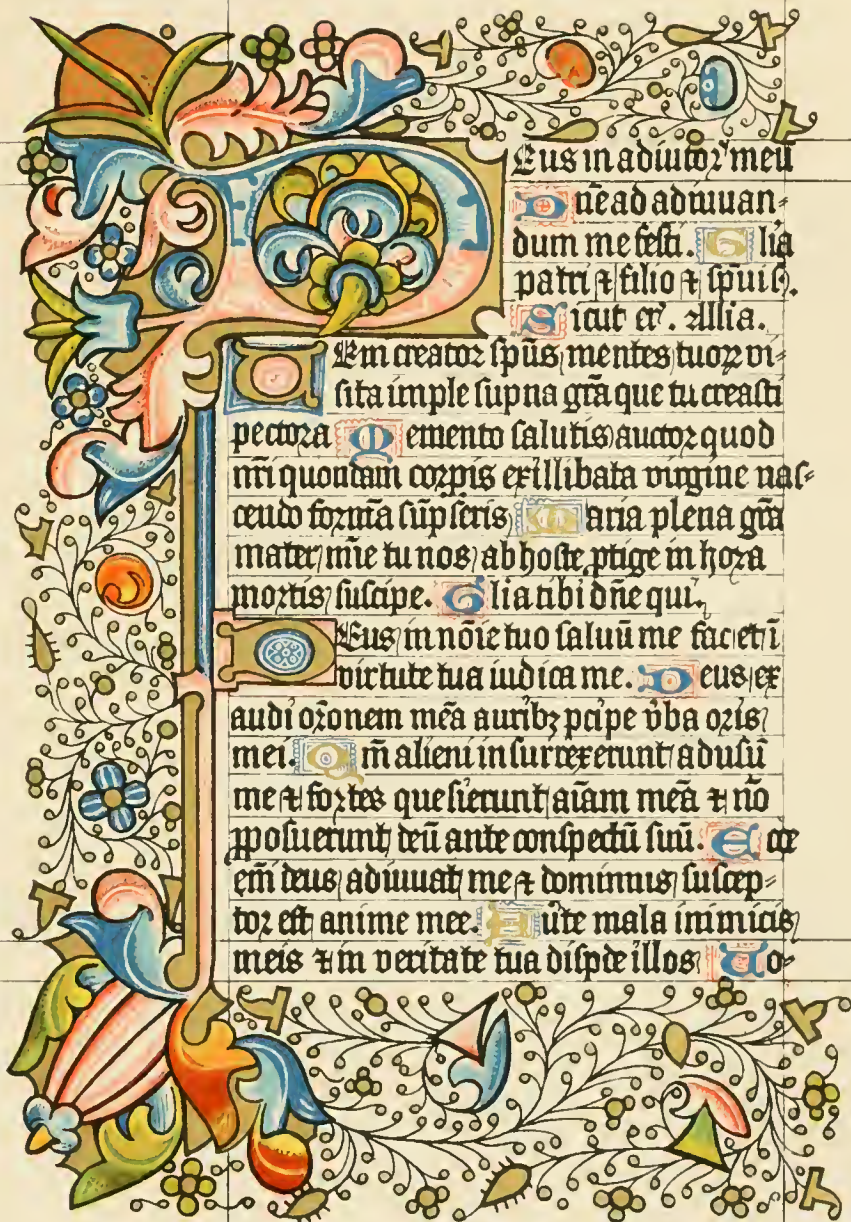 Deus in adiutor' meū
Dn̄e ad adiuuan-
dum me festi. Glīa
patri ⁊ filio ⁊ sp̄uiſ.
Sicut er'. Allīa.
Ueni creator sp̄us mentes tuoꝝ vi-
sita imple sup̄na gr̄a que tu creasti
pectora Memento salutis auctor quod
nr̄i quondam corp̄is ex illibata virgine nas-
cendo formā sūpseris Maria plena gr̄a
mater mīe tu nos ab hoste ꝓtige in hora
mortis suscipe. Glīa tibi dn̄e qui.
Deus in nōie tuo saluū me fac et ī
virtute tua iudica me. Deus ex
audi or̄onem meā auribꝫ p̄cipe v̄ba oris
mei. Qm̄ alieni insurrexerunt adūsū
me ⁊ fortes quesierunt aīam meā ⁊ nō
ꝓposuerunt deū ante conspectū suū. Ecce
em̄ deus adiuuat me ⁊ dominus suscep-
tor est anime mee. Auūte mala inimicis
meis ⁊ in veritate tua disp̄de illos Uo-